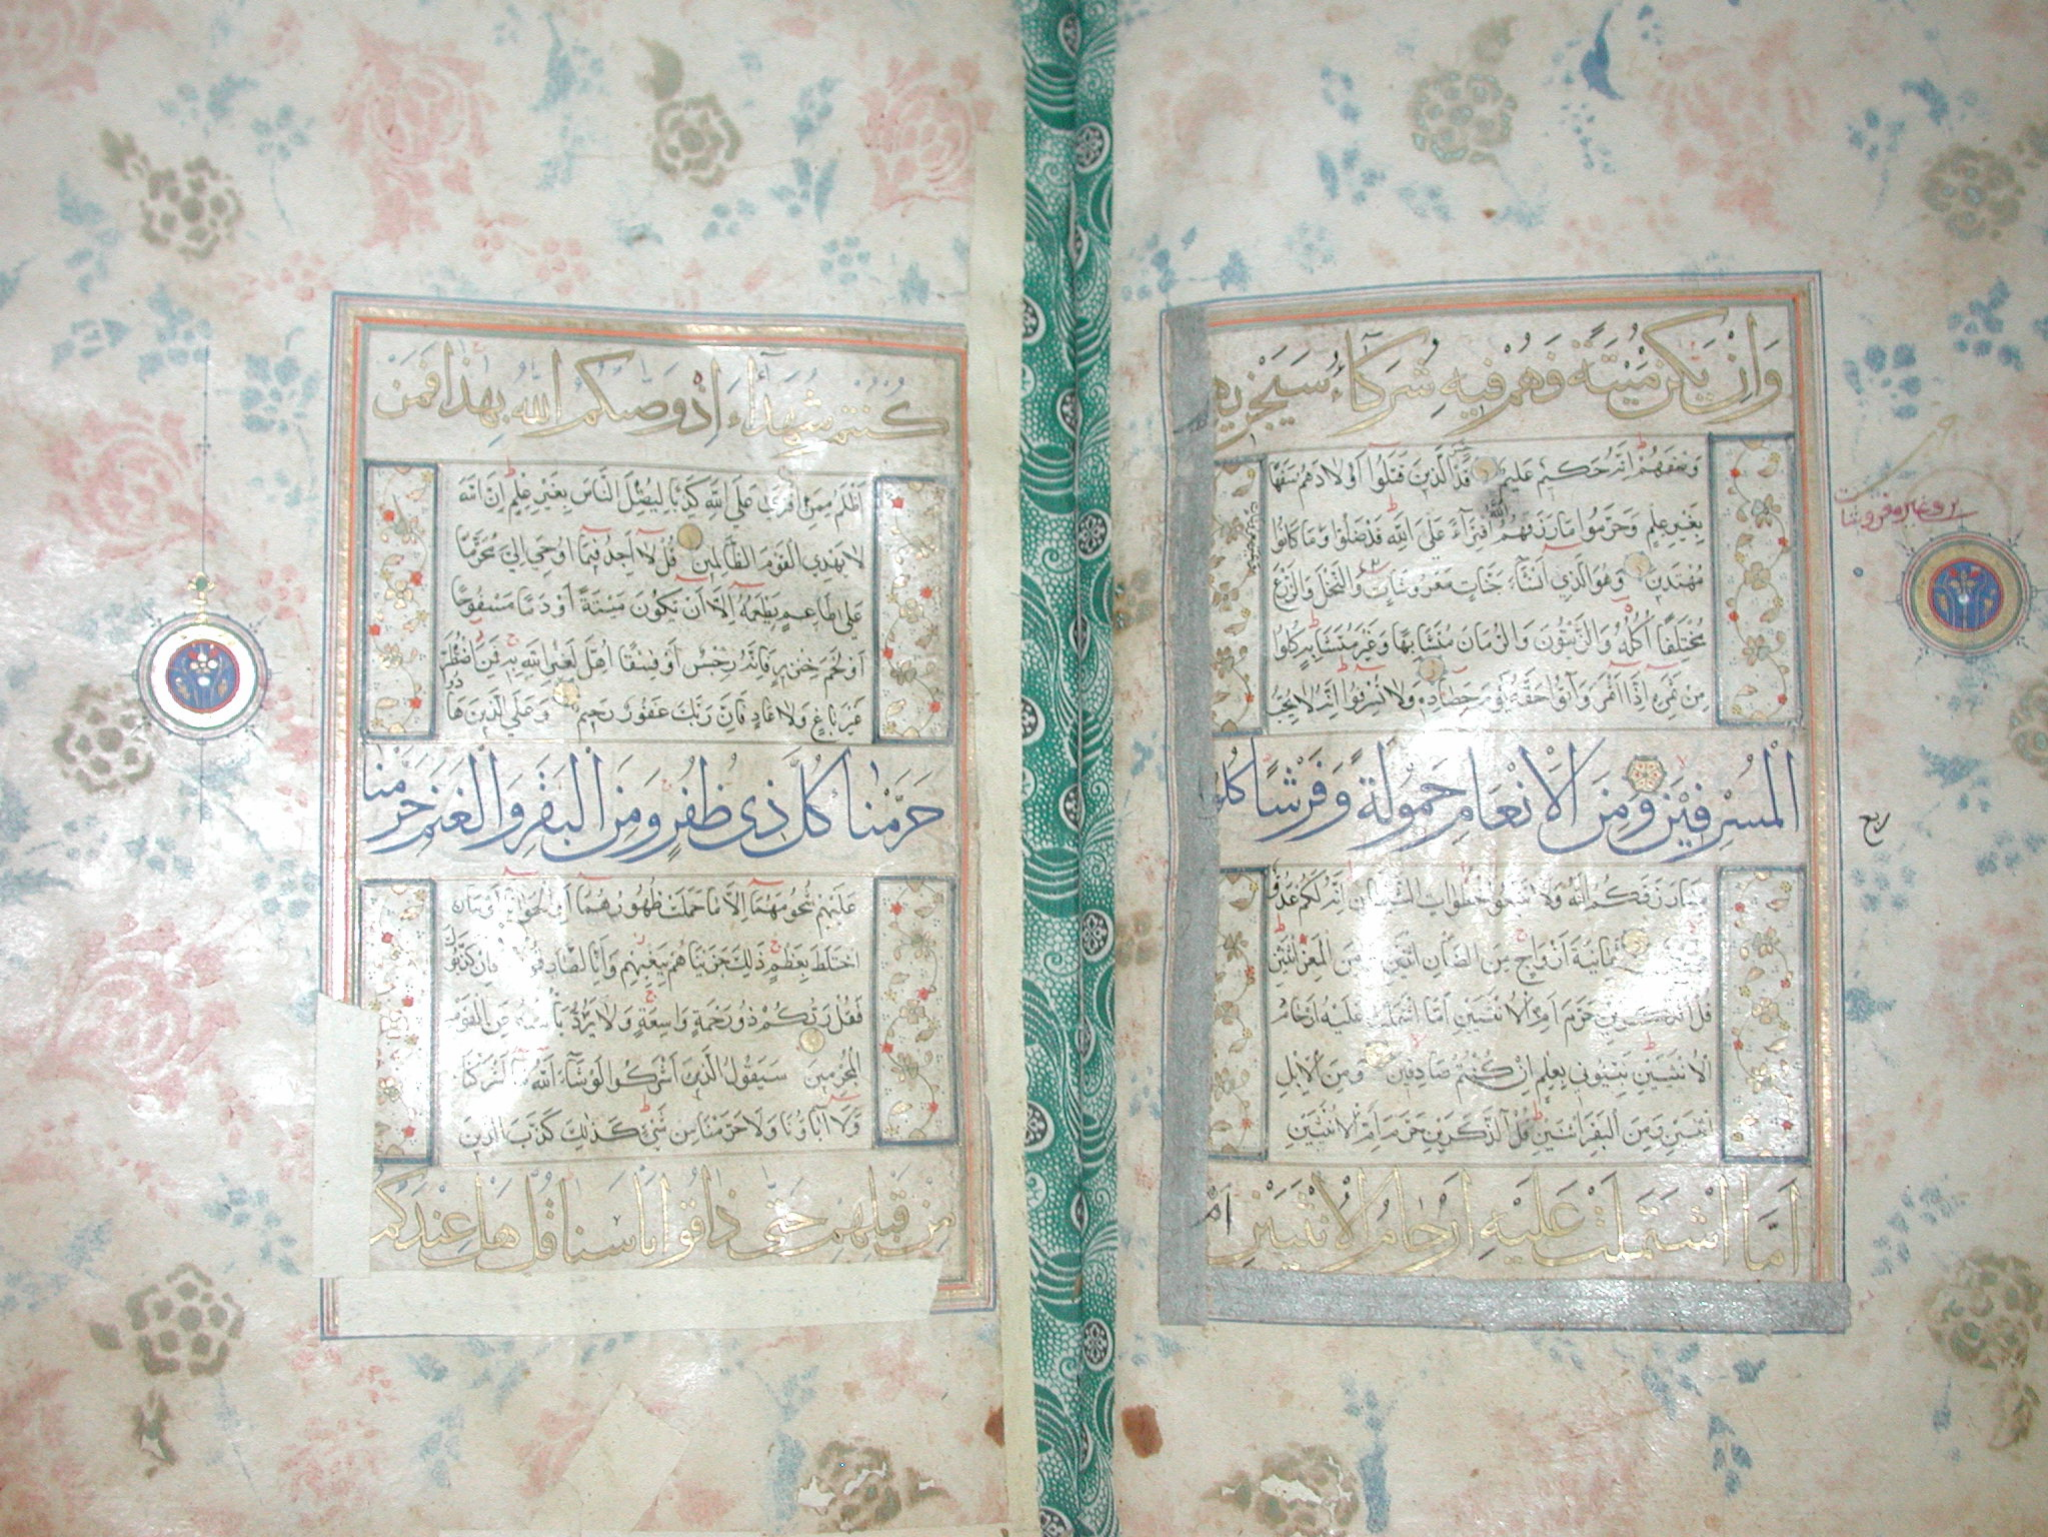 وَاِنْ يَكُنْ مَيْتَةً فَهُمْ فِيهِ شُرَكَاءُ سَيَجْزِيهِمْ
وَصْفَهُمْ اِنَّهُ حَكِيمٌ عَلِيمٌ قَدْ الَّذِينَ قَتَلُوا اَوْلَادَهُمْ سَفَهًا
بِغَيْرِ عِلْمٍ وَحَرَّمُوا مَا رَزَقَهُمُ اللّٰهُ افْتِرَآءً عَلَى اللّٰهِ قَدْ ضَلُّوا وَمَا كَانُوا
مُهْتَدِينَ وَهُوَ الَّذِي اَنْشَاَ جَنَّاتٍ مَعْرُوشَاتٍ وَالنَّخْلَ وَالزَّرْعَ
مُخْتَلِفًا اُكُلُهُ وَالزَّيْتُونَ وَالرُّمَّانَ مُتَشَابِهًا وَغَيْرَ مُتَشَابِهٍ كُلُوا
مِنْ ثَمَرِهِ اِذَا اَثْمَرَ وَآتُوا حَقَّهُ يَوْمَ حَصَادِهِ وَلَا تُسْرِفُوا اِنَّهُ لَا يُحِبُّ
الْمُسْرِفِينَ وَمِنَ الْاَنْعَامِ حَمُولَةً وَفَرْشًا كُلُوا
مِمَّا رَزَقَكُمُ اللّٰهُ وَلَا تَتَّبِعُوا خُطُوَاتِ الشَّيْطَانِ اِنَّهُ لَكُمْ عَدُوٌّ
ثَمَانِيَةَ اَزْوَاجٍ مِنَ الضَّاْنِ اثْنَيْنِ وَمِنَ الْمَعْزِ اثْنَيْنِ
قُلْ آلذَّكَرَيْنِ حَرَّمَ اَمِ الْاُنْثَيَيْنِ اَمَّا اشْتَمَلَتْ عَلَيْهِ اَرْحَامُ
الْاُنْثَيَيْنِ نَبِّئُونِي بِعِلْمٍ اِنْ كُنْتُمْ صَادِقِينَ وَمِنَ الْاِبِلِ
اثْنَيْنِ وَمِنَ الْبَقَرِ اثْنَيْنِ قُلْ آلذَّكَرَيْنِ حَرَّمَ اَمِ الْاُنْثَيَيْنِ
اَمَّا اشْتَمَلَتْ عَلَيْهِ اَرْحَامُ الْاُنْثَيَيْنِ اَمْ
ربع
كُنْتُمْ شُهَدَآءَ اِذْ وَصّٰكُمُ اللّٰهُ بِهٰذَا فَمَنْ
اَظْلَمُ مِمَّنِ افْتَرَى عَلَى اللّٰهِ كَذِبًا لِيُضِلَّ النَّاسَ بِغَيْرِ عِلْمٍ اِنَّ اللّٰهَ
لَا يَهْدِي الْقَوْمَ الظَّالِمِينَ قُلْ لَا اَجِدُ فِيمَا اُوحِيَ اِلَيَّ مُحَرَّمًا
عَلَى طَاعِمٍ يَطْعَمُهُ اِلَّا اَنْ يَكُونَ مَيْتَةً اَوْ دَمًا مَسْفُوحًا
اَوْ لَحْمَ خِنْزِيرٍ فَاِنَّهُ رِجْسٌ اَوْ فِسْقًا اُهِلَّ لِغَيْرِ اللّٰهِ بِهِ فَمَنِ اضْطُرَّ
غَيْرَ بَاغٍ وَلَا عَادٍ فَاِنَّ رَبَّكَ غَفُورٌ رَحِيمٌ وَعَلَى الَّذِينَ هَادُوا
حَرَّمْنَا كُلَّ ذِي ظُفُرٍ وَمِنَ الْبَقَرِ وَالْغَنَمِ حَرَّمْنَا
عَلَيْهِمْ شُحُومَهُمَا اِلَّا مَا حَمَلَتْ ظُهُورُهُمَا اَوِ الْحَوَايَا اَوْ مَا
اخْتَلَطَ بِعَظْمٍ ذٰلِكَ جَزَيْنَاهُمْ بِبَغْيِهِمْ وَاِنَّا لَصَادِقُونَ فَاِنْ كَذَّبُوكَ
فَقُلْ رَبُّكُمْ ذُو رَحْمَةٍ وَاسِعَةٍ وَلَا يُرَدُّ بَاْسُهُ عَنِ الْقَوْمِ
الْمُجْرِمِينَ سَيَقُولُ الَّذِينَ اَشْرَكُوا لَوْ شَآءَ اللّٰهُ مَا اَشْرَكْنَا
وَلَا آبَاؤُنَا وَلَا حَرَّمْنَا مِنْ شَيْءٍ كَذٰلِكَ كَذَّبَ الَّذِينَ
مِنْ قَبْلِهِمْ حَتّٰى ذَاقُوا بَاْسَنَا قُلْ هَلْ عِنْدَكُمْ